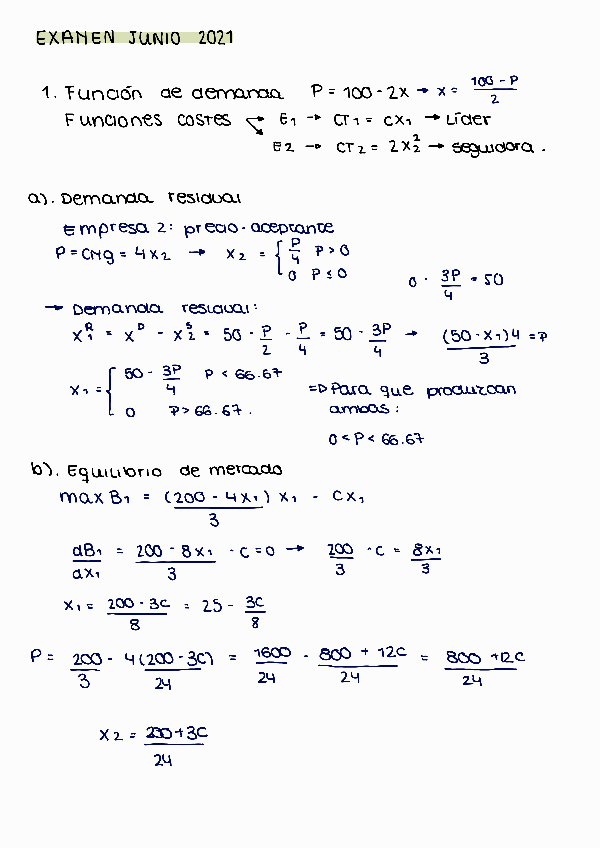 EXAMEN JUNIO 2021
1. Función de demanda P = 100 - 2x → x = (100 - P)/2
Funciones costes → E1 → CT1 = cx1 → Líder
E2 → CT2 = 2x2² → seguidora.
a). Demanda residual
Empresa 2: precio-aceptante
P = CMg = 4x2 → x2 = { P/4 P > 0
0 P ≤ 0
0 - 3P/4 = 50
→ Demanda residual:
x1^R = x^D - x2^S = 50 - P/2 - P/4 = 50 - 3P/4 → (50 - x1)4/3 = P
x1 = { 50 - 3P/4 P < 66.67
0 P > 66.67.
⇒ Para que produzcan
ambas:
0 < P < 66.67
b). Equilibrio de mercado
max B1 = (200 - 4x1)/3 x1 - cx1
dB1/dx1 = (200 - 8x1)/3 - c = 0 → 200/3 - c = 8x1/3
x1 = (200 - 3c)/8 = 25 - 3c/8
P = 200/3 - 4(200 - 3c)/24 = 1600/24 - (800 + 12c)/24 = (800 + 12c)/24
x2 = (200 + 3c)/24